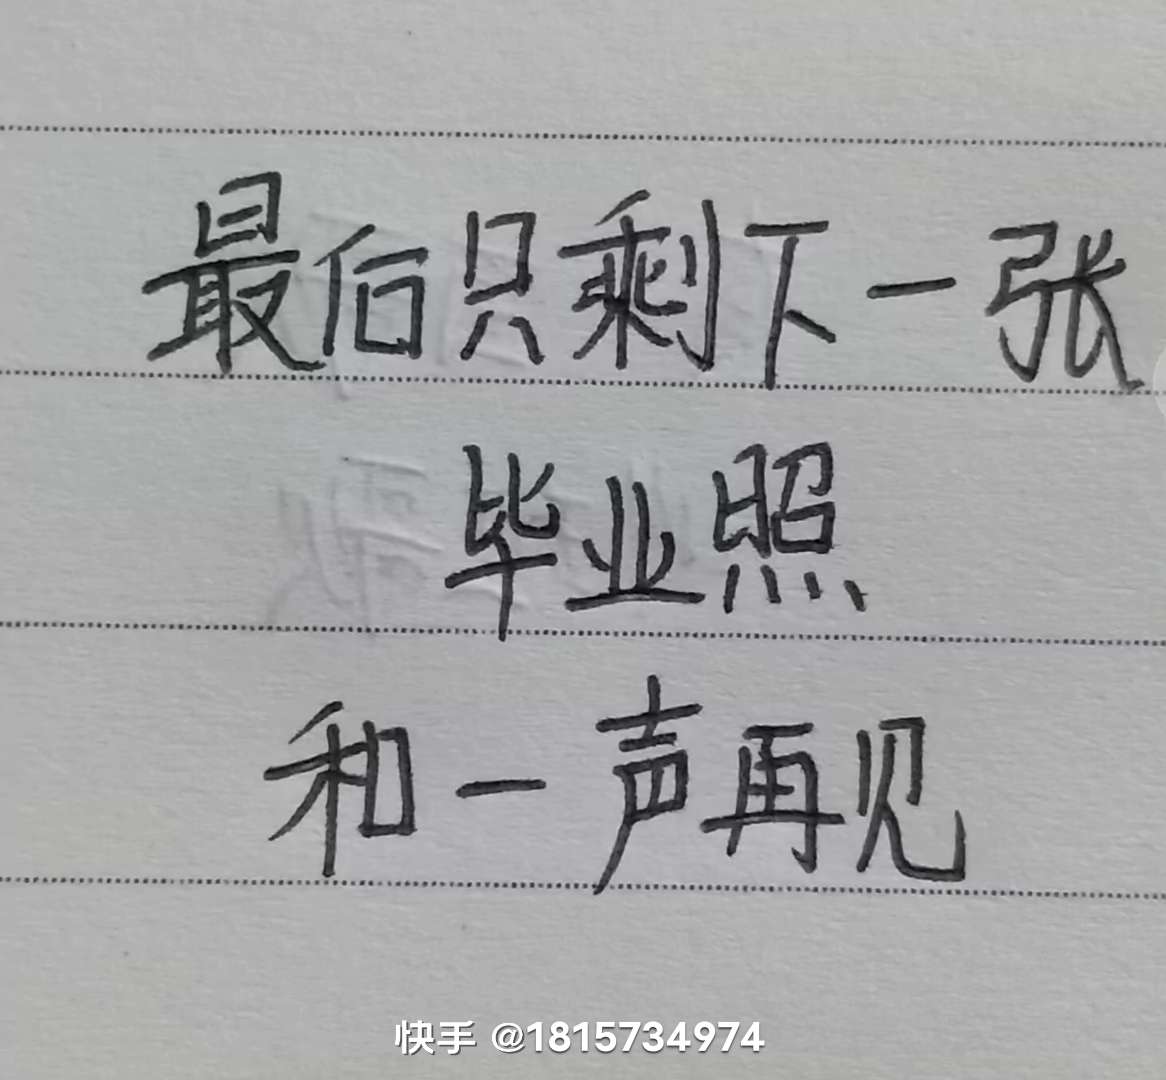 最后只剩下一张
毕业照
和一声再见
快手 @1815734974